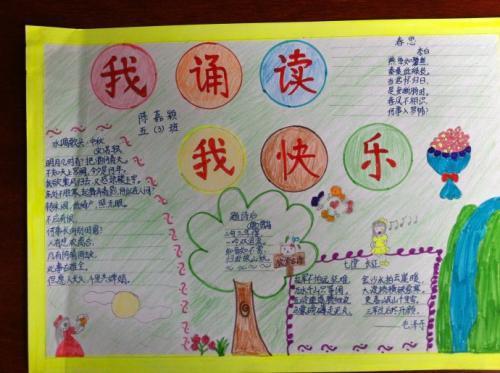 我诵读
我快乐
陈嘉颖
五(3)班
春思
李白
燕草如碧丝,
秦桑低绿枝。
当君怀归日,
是妾断肠时。
春风不相识,
何事入罗帏?
水调歌头·中秋
明月几时有?把酒问青天。
不知天上宫阙,今夕是何年。
我欲乘风归去,又恐琼楼玉宇,
高处不胜寒。起舞弄清影,何似在人间?
转朱阁,低绮户,照无眠。
不应有恨,
何事长向别时圆?
人有悲欢离合,
月有阴晴圆缺,
此事古难全。
但愿人长久,千里共婵娟。
题诗后
贾岛
二句三年得,
一吟双泪流。
知音如不赏,
归卧故山秋。
七律 长征
红军不怕远征难,
万水千山只等闲。
五岭逶迤腾细浪,
乌蒙磅礴走泥丸。
金沙水拍云崖暖,
大渡桥横铁索寒。
更喜岷山千里雪,
三军过后尽开颜。
毛泽东